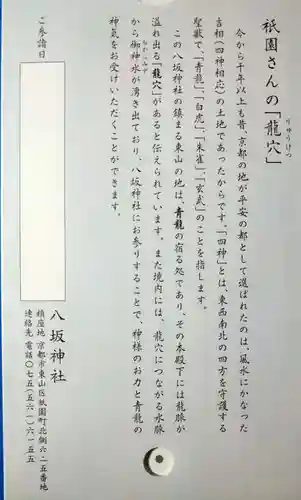 祇園さんの「龍穴」
りゅうけつ
今から千年以上も昔、京都の地が平安の都として選ばれたのは、風水にかなった
吉相（四神相応）の土地であったからです。「四神」とは、東西南北の四方を守護する
聖獣で、「青龍」、「白虎」、「朱雀」、「玄武」のことを指します。
この八坂神社の鎮まる東山の地は、青龍の宿る処であり、その本殿下には龍脈が
溢れ出る「龍穴」があると伝えられています。また境内には、龍穴につながる水脈
から御神水が湧き出ており、八坂神社にお参りすることで、神様のお力と青龍の
神気をお受けいただくことができます。
ご参詣日
八坂神社
鎮座地 京都市東山区祇園町北側六二五番地
連絡先 電話〇七五（五六一）六一五五